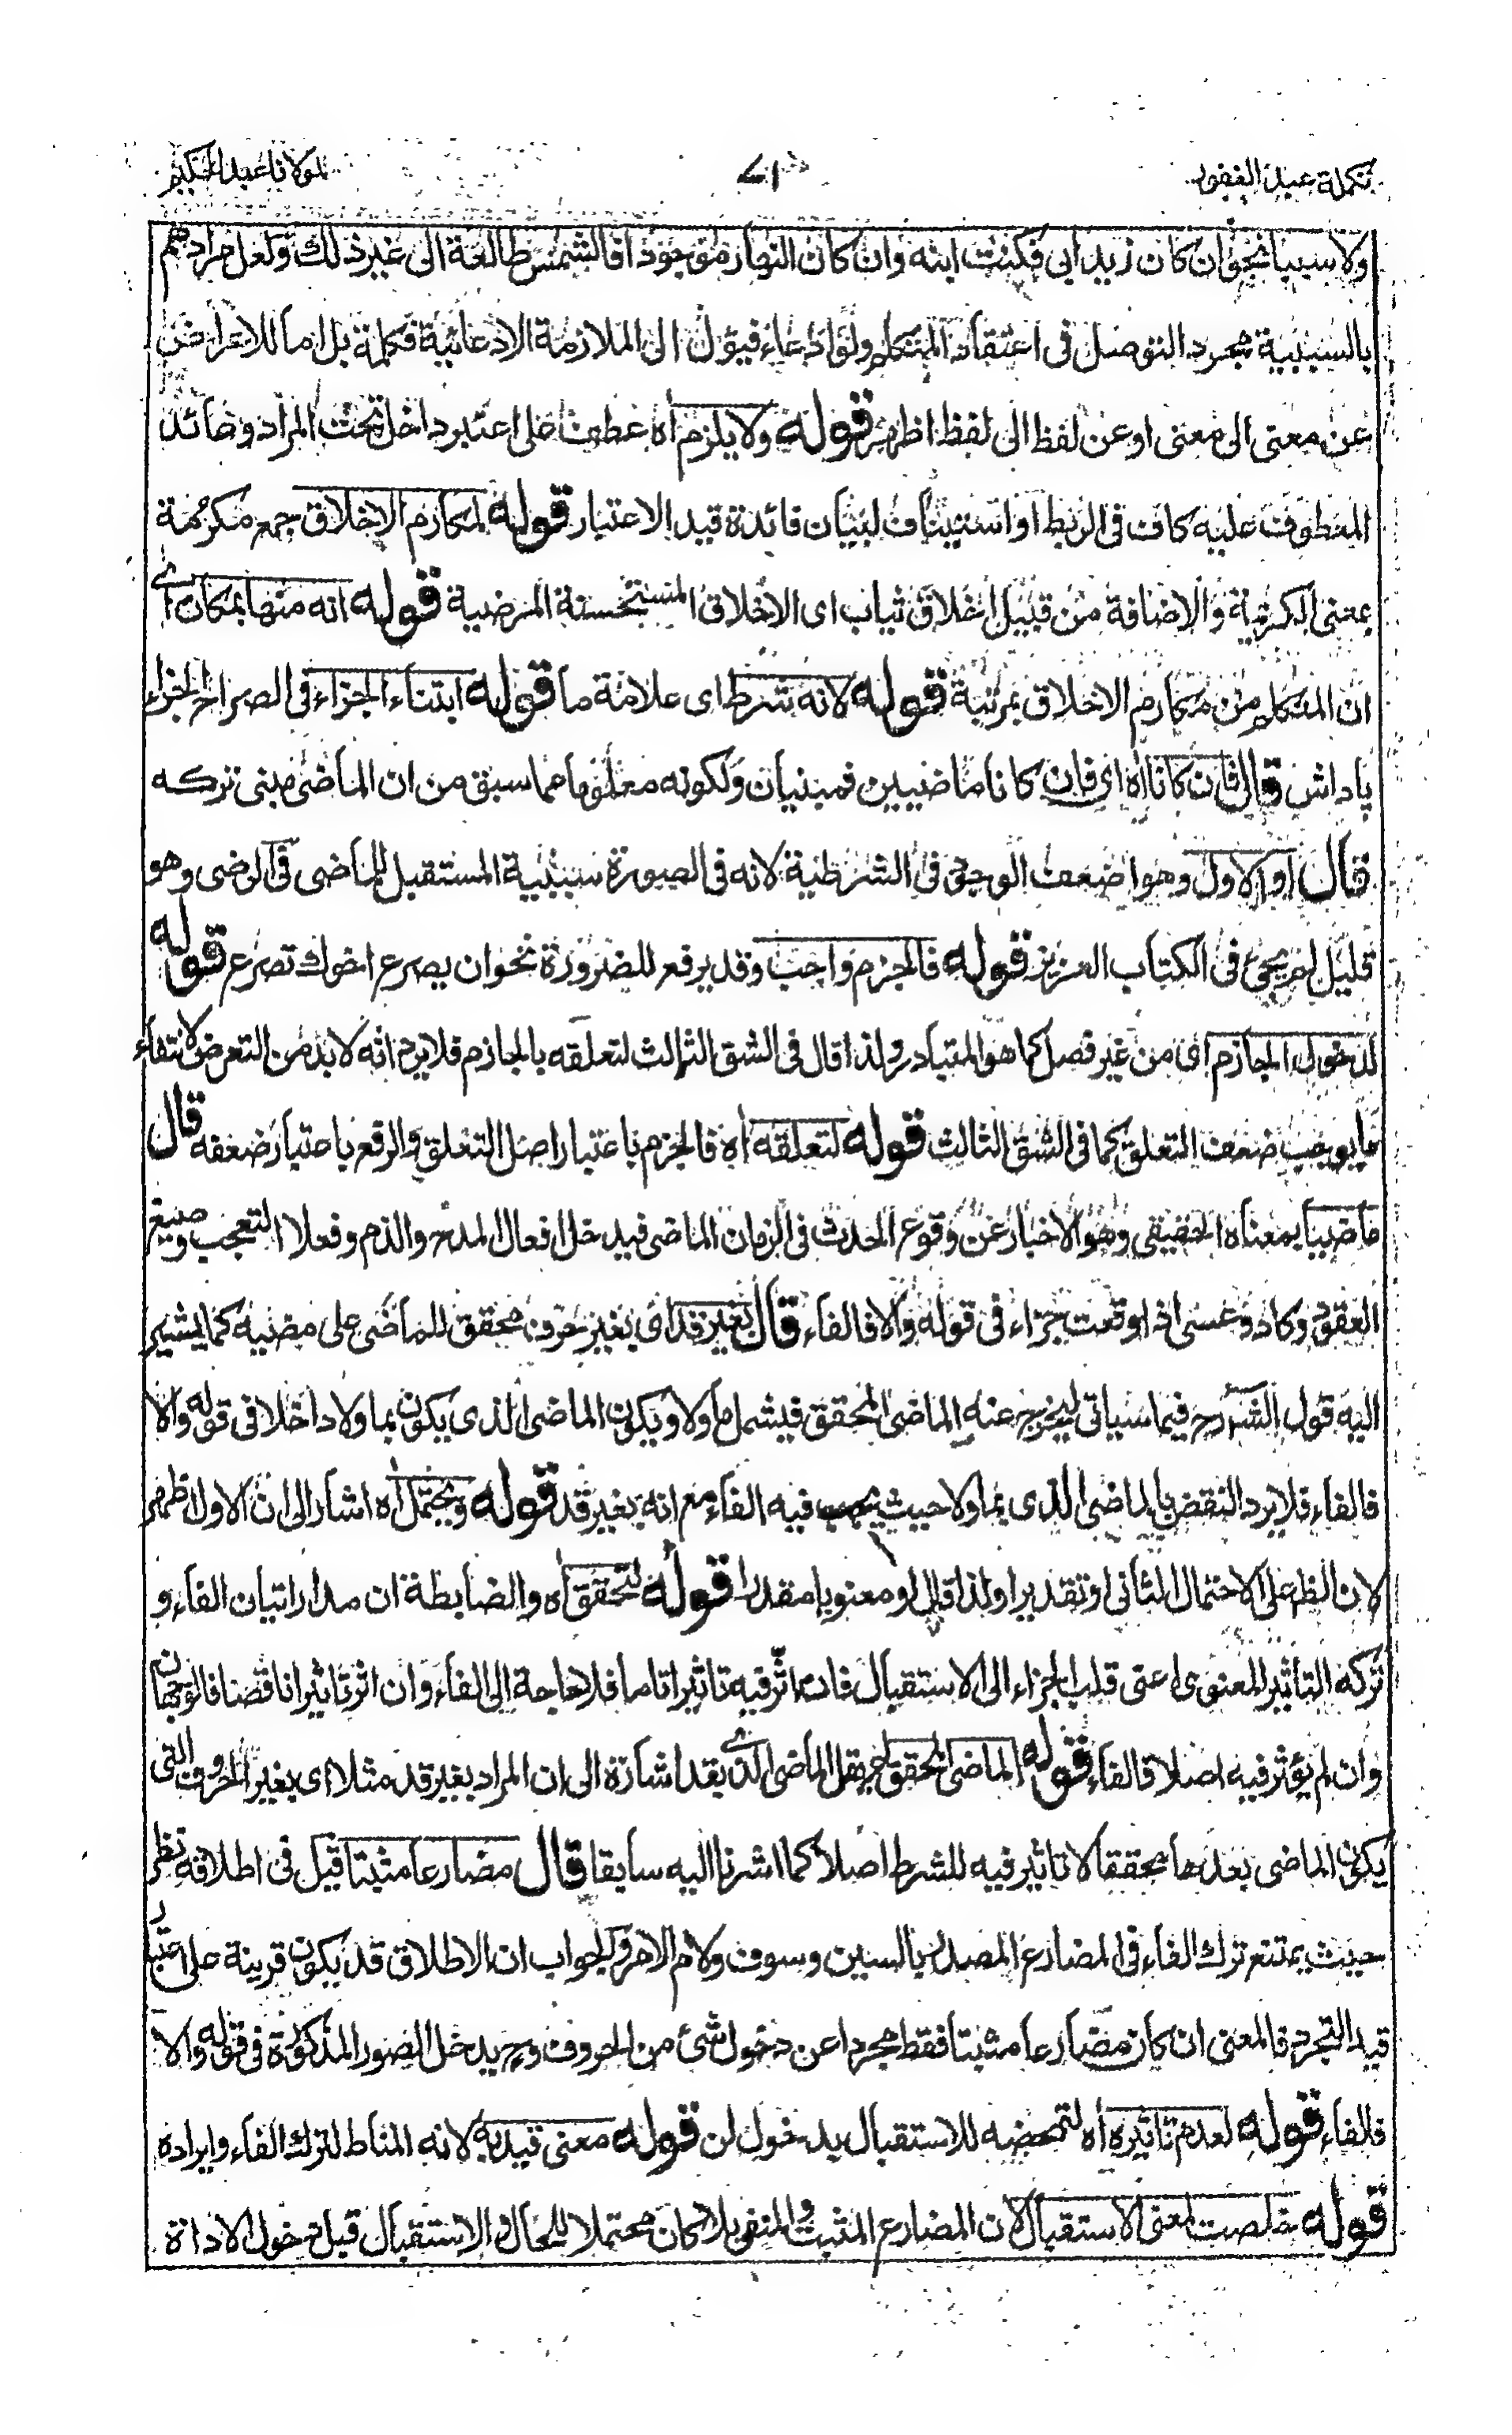 تكملة عبد الغفور
٧١
لمولانا عبد الحكيم
ولا سببا نحو ان كان زيد ابى فكنت ابنه وان كان النهار موجودا فالشمس طالعة الى غير ذلك ولعل مرادهم
بالسببية مجرد التوصل فى اعتقاد المتكلم ولو ادعاء فيؤل الى الملازمة الادعائية فكلمة بل اما للاعراض
عن معنى الى معنى او عن لفظ الى لفظ اظهر قوله ولا يلزم اه عطف على اعتبر داخل تحت المراد وعائد
المعطوف عليه كاف فى الربط او استيناف لبيان فائدة قيد الاعتبار قوله لمكارم الاخلاق جمع مكرمة
بمعنى الكرمة والاضافة من قبيل اخلاق ثياب اى الاخلاق المستحسنة المرضية قوله انه منها بمكان اى
ان المتكلم من مكارم الاخلاق بمرتبة قوله لانه شرط اى علامة ما قوله ابتناء الجزاء فى الصراح الجزاء
پاداش قال فان كانا اه اى فان كانا ماضيين فمبنيان ولكونه معلوما مما سبق من ان الماضى مبنى تركه
قال او الاول وهو اضعف الوجوه فى الشرطية لانه فى الصورة سببية المستقبل للماضى فى الرضى وهو
قليل لم يجئ فى الكتاب العزيز قوله فالجزم واجب وقد يرفع للضرورة نحو ان يصرع اخوك تصرع قوله
لدخول الجازم اى من غير فصل كما هو المتبادر ولذا قال فى الشق الثالث لتعلقه بالجازم فلا يرد انه لا بد من التعرض لانتفاء
ما يوجب ضعف التعلق كما فى الشق الثالث قوله لتعلقه اه فالجزم باعتبار اصل التعلق والرفع باعتبار ضعفه قال
ماضيا بمعناه الحقيقى وهو الاخبار عن وقوع الحدث فى الزمان الماضى فيدخل افعال المدح والذم وفعلا التعجب وصيغ
العقود وكاد وعسى اذا وقعت جزاء فى قوله والا فالفاء قال بغير قد اى بغير حرف محقق للماضى على مضيه كما يشير
اليه قول الشرح فيما سياتى ليخرج عنه الماضى المحقق فيشمل ما ولا ويكون الماضى الذى يكون بما ولا داخلا فى قوله والا
فالفاء فلا يرد النقض بالماضى الذى بما ولا حيث يجب فيه الفاء مع انه بغير قد قوله ويحتمل اه اشار الى ان الاول اظهر
لان الظ على الاحتمال الثانى او تقديرا ولذا قال او معنويا مقدرا قوله لتحقق اه والضابطة ان مدار اتيان الفاء و
تركه التاثير المعنوى اعنى قلب الجزاء الى الاستقبال فان اثر فيه تاثيرا تاما فلا حاجة الى الفاء وان اثر تاثيرا ناقصا فالوجهان
وان لم يؤثر فيه اصلا فالفاء قوله الماضى المحقق لم يقل الماضى الذى بقد اشارة الى ان المراد بغير قد مثلا اى بغير الحروف التى
يكون الماضى بعدها محققا لا تاثير فيه للشرط اصلا كما اشرنا اليه سابقا قال مضارعا مثبتا قيل فى اطلاقه نظر
حيث يمتنع ترك الفاء فى المضارع المصدر بالسين وسوف ولام الامر والجواب ان الاطلاق قد يكون قرينة على اعتبار
قيد التجرد فالمعنى ان كان مضارعا مثبتا فقط مجردا عن دخول شئ من الحروف وح يدخل الصور المذكورة فى قوله والا
فالفاء قوله لعدم تاثيره اه لتمحضه للاستقبال بدخول لن قوله معنى قيد به لانه المناط لترك الفاء وايراده
قوله خلصت لمعنى الاستقبال لان المضارع المثبت والمنفى بلا كان محتملا للحال والاستقبال قبل دخول الاداة